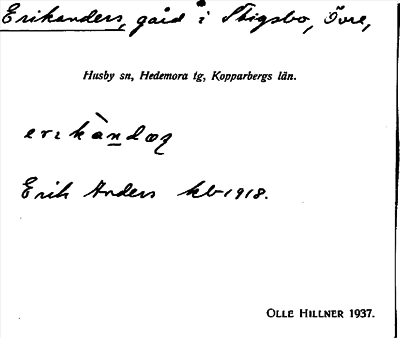 Erikanders, gård i Stigsbo, Övre,
Husby sn, Hedemora tg, Kopparbergs län.
Erik Anders kb 1918.
OLLE HILLNER 1937.